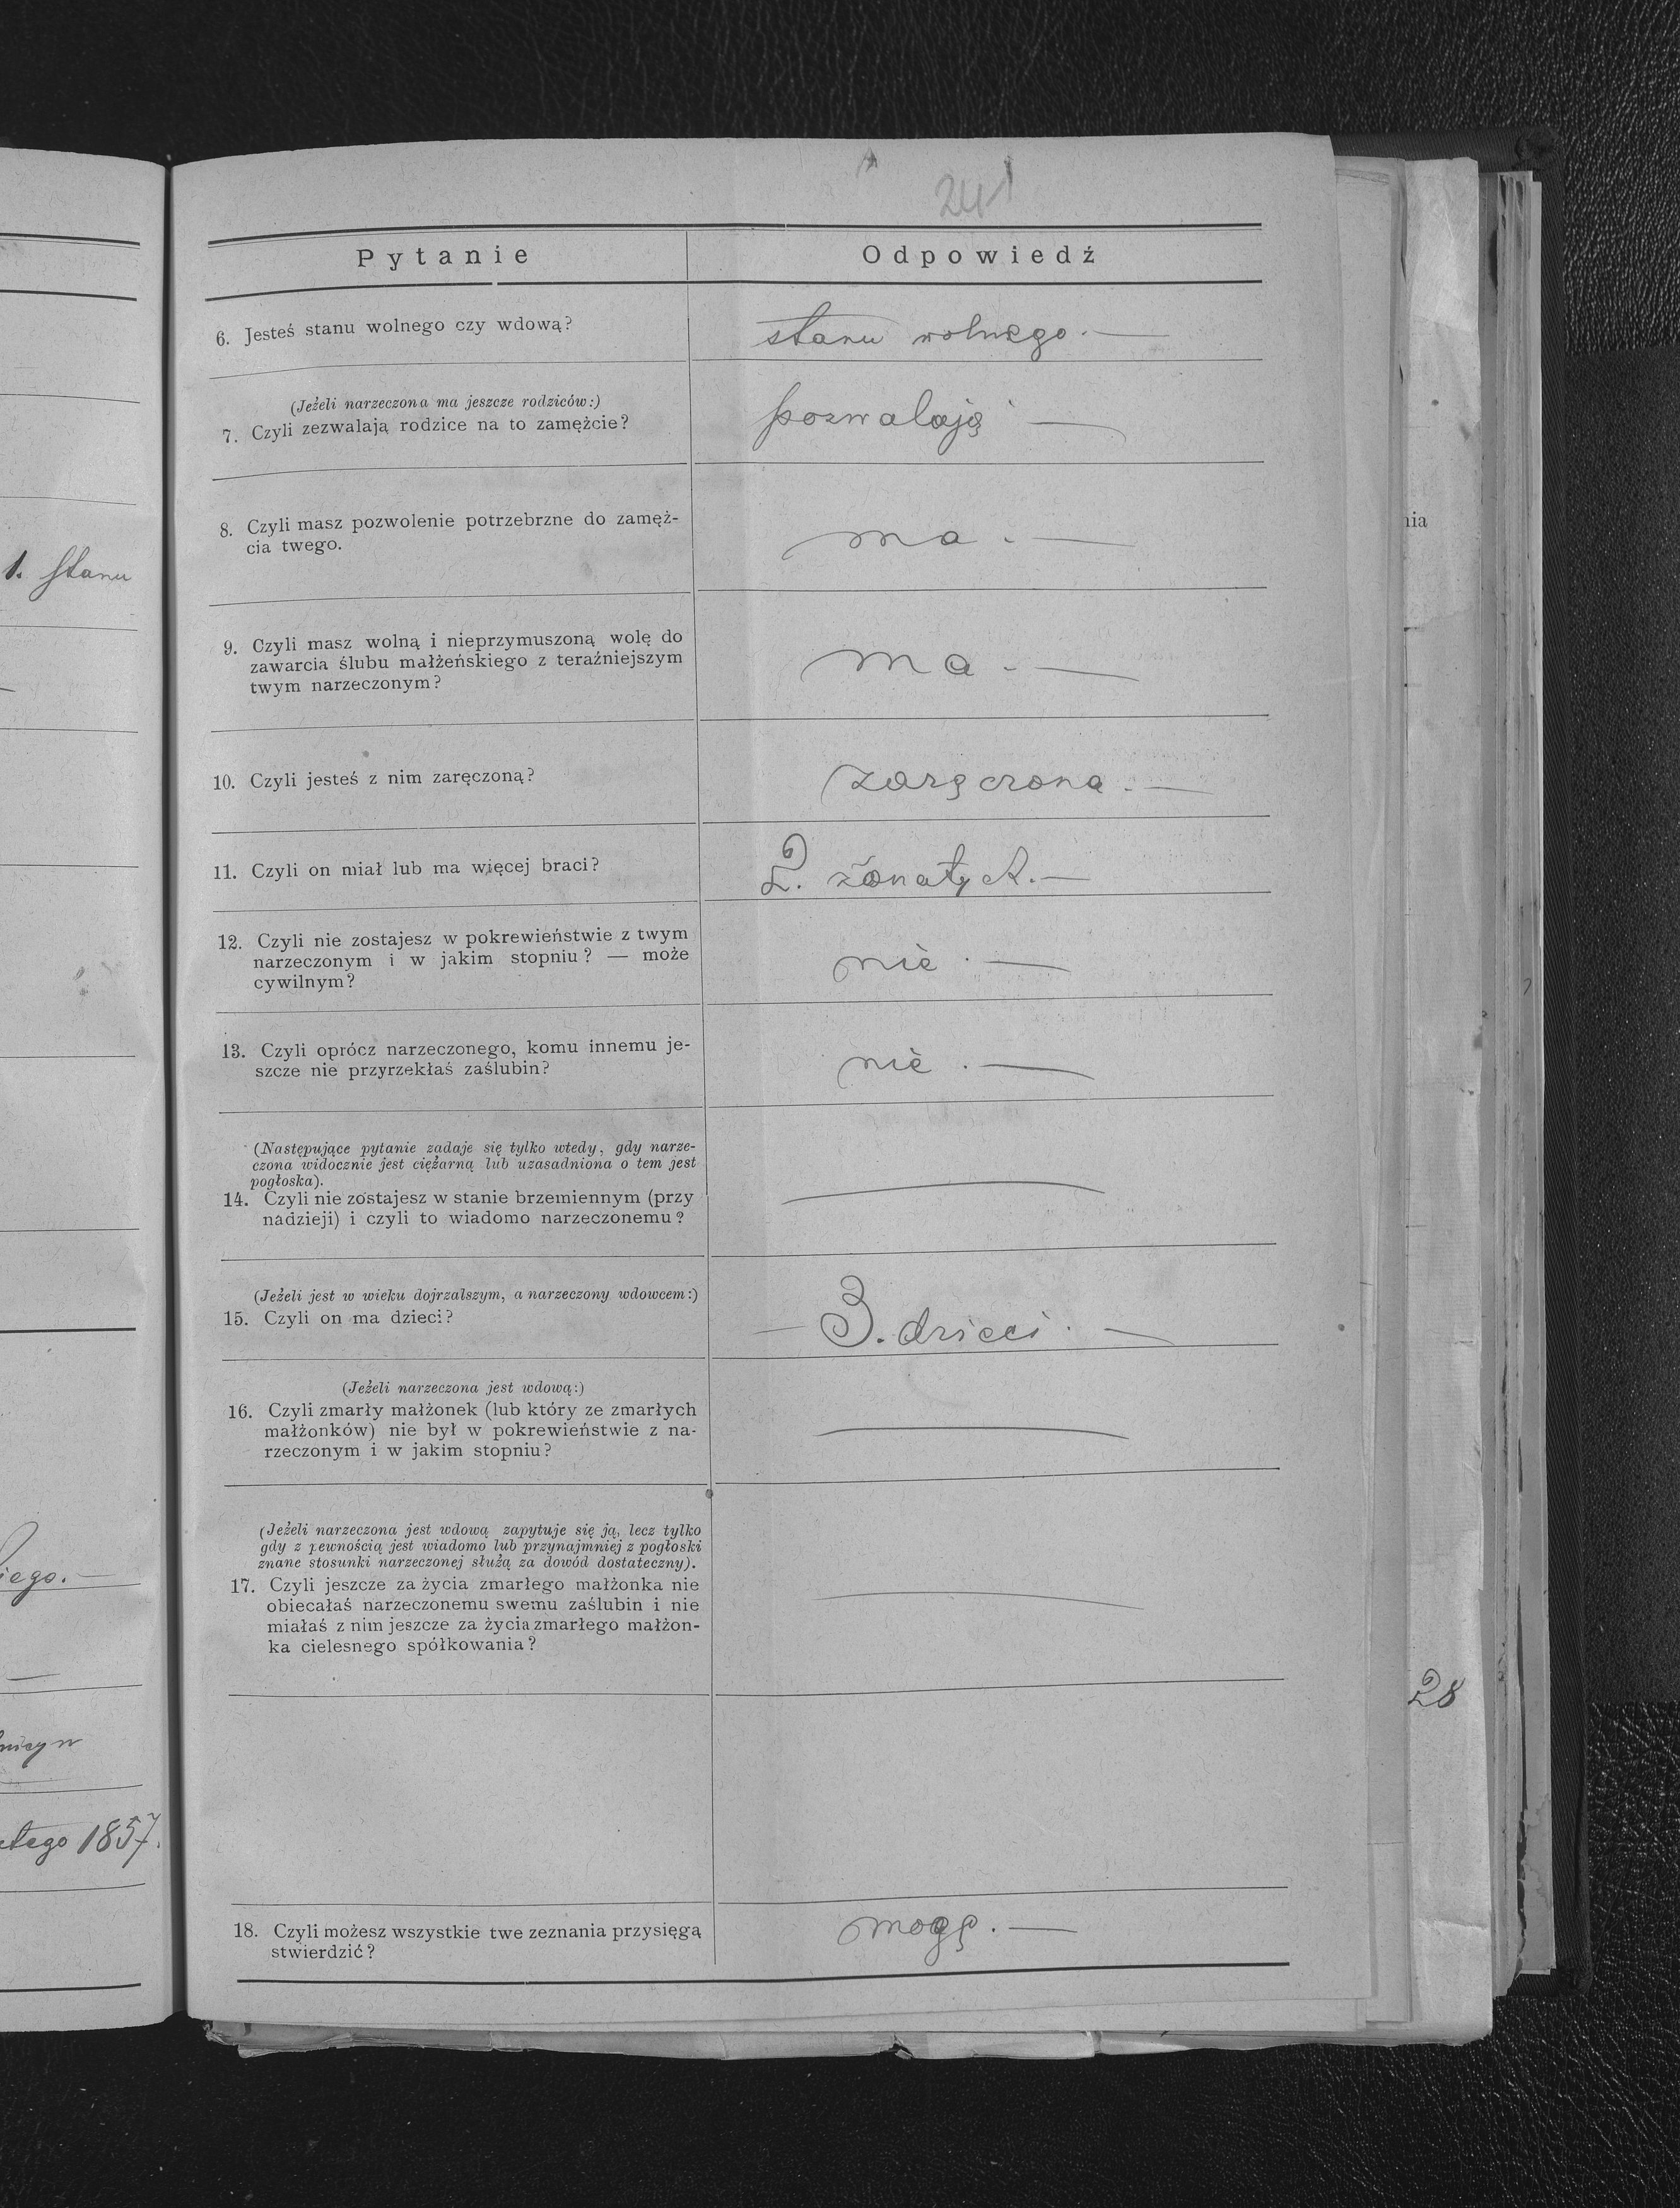 1. stanu
iego. —
utego 1857.
241
Pytanie
Odpowiedź
6. Jesteś stanu wolnego czy wdową?
stanu wolnego. —
(Jeżeli narzeczona ma jeszcze rodziców:)
7. Czyli zezwalają rodzice na to zamężcie?
pozwalają —
8. Czyli masz pozwolenie potrzebrzne do zamęż-
cia twego.
ma. —
9. Czyli masz wolną i nieprzymuszoną wolę do
zawarcia ślubu małżeńskiego z teraźniejszym
twym narzeczonym?
ma. —
10. Czyli jesteś z nim zaręczoną?
zaręczona. —
11. Czyli on miał lub ma więcej braci?
2. żonatych. —
12. Czyli nie zostajesz w pokrewieństwie z twym
narzeczonym i w jakim stopniu? — może
cywilnym?
nie. —
13. Czyli oprócz narzeczonego, komu innemu je-
szcze nie przyrzekłaś zaślubin?
nie. —
(Następujące pytanie zadaje się tylko wtedy, gdy narze-
czona widocznie jest ciężarną lub uzasadniona o tem jest
pogłoska).
14. Czyli nie zostajesz w stanie brzemiennym (przy
nadzieji) i czyli to wiadomo narzeczonemu?
—
(Jeżeli jest w wieku dojrzalszym, a narzeczony wdowcem:)
15. Czyli on ma dzieci?
— 3. dzieci. —
(Jeżeli narzeczona jest wdową:)
16. Czyli zmarły małżonek (lub który ze zmarłych
małżonków) nie był w pokrewieństwie z na-
rzeczonym i w jakim stopniu?
—
(Jeżeli narzeczona jest wdową zapytuje się ją, lecz tylko
gdy z pewnością jest wiadomo lub przynajmniej z pogłoski
znane stosunki narzeczonej służą za dowód dostateczny).
17. Czyli jeszcze za życia zmarłego małżonka nie
obiecałaś narzeczonemu swemu zaślubin i nie
miałaś z nim jeszcze za życia zmarłego małżon-
ka cielesnego spółkowania?
—
18. Czyli możesz wszystkie twe zeznania przysięgą
stwierdzić?
mogę. —
nia
28